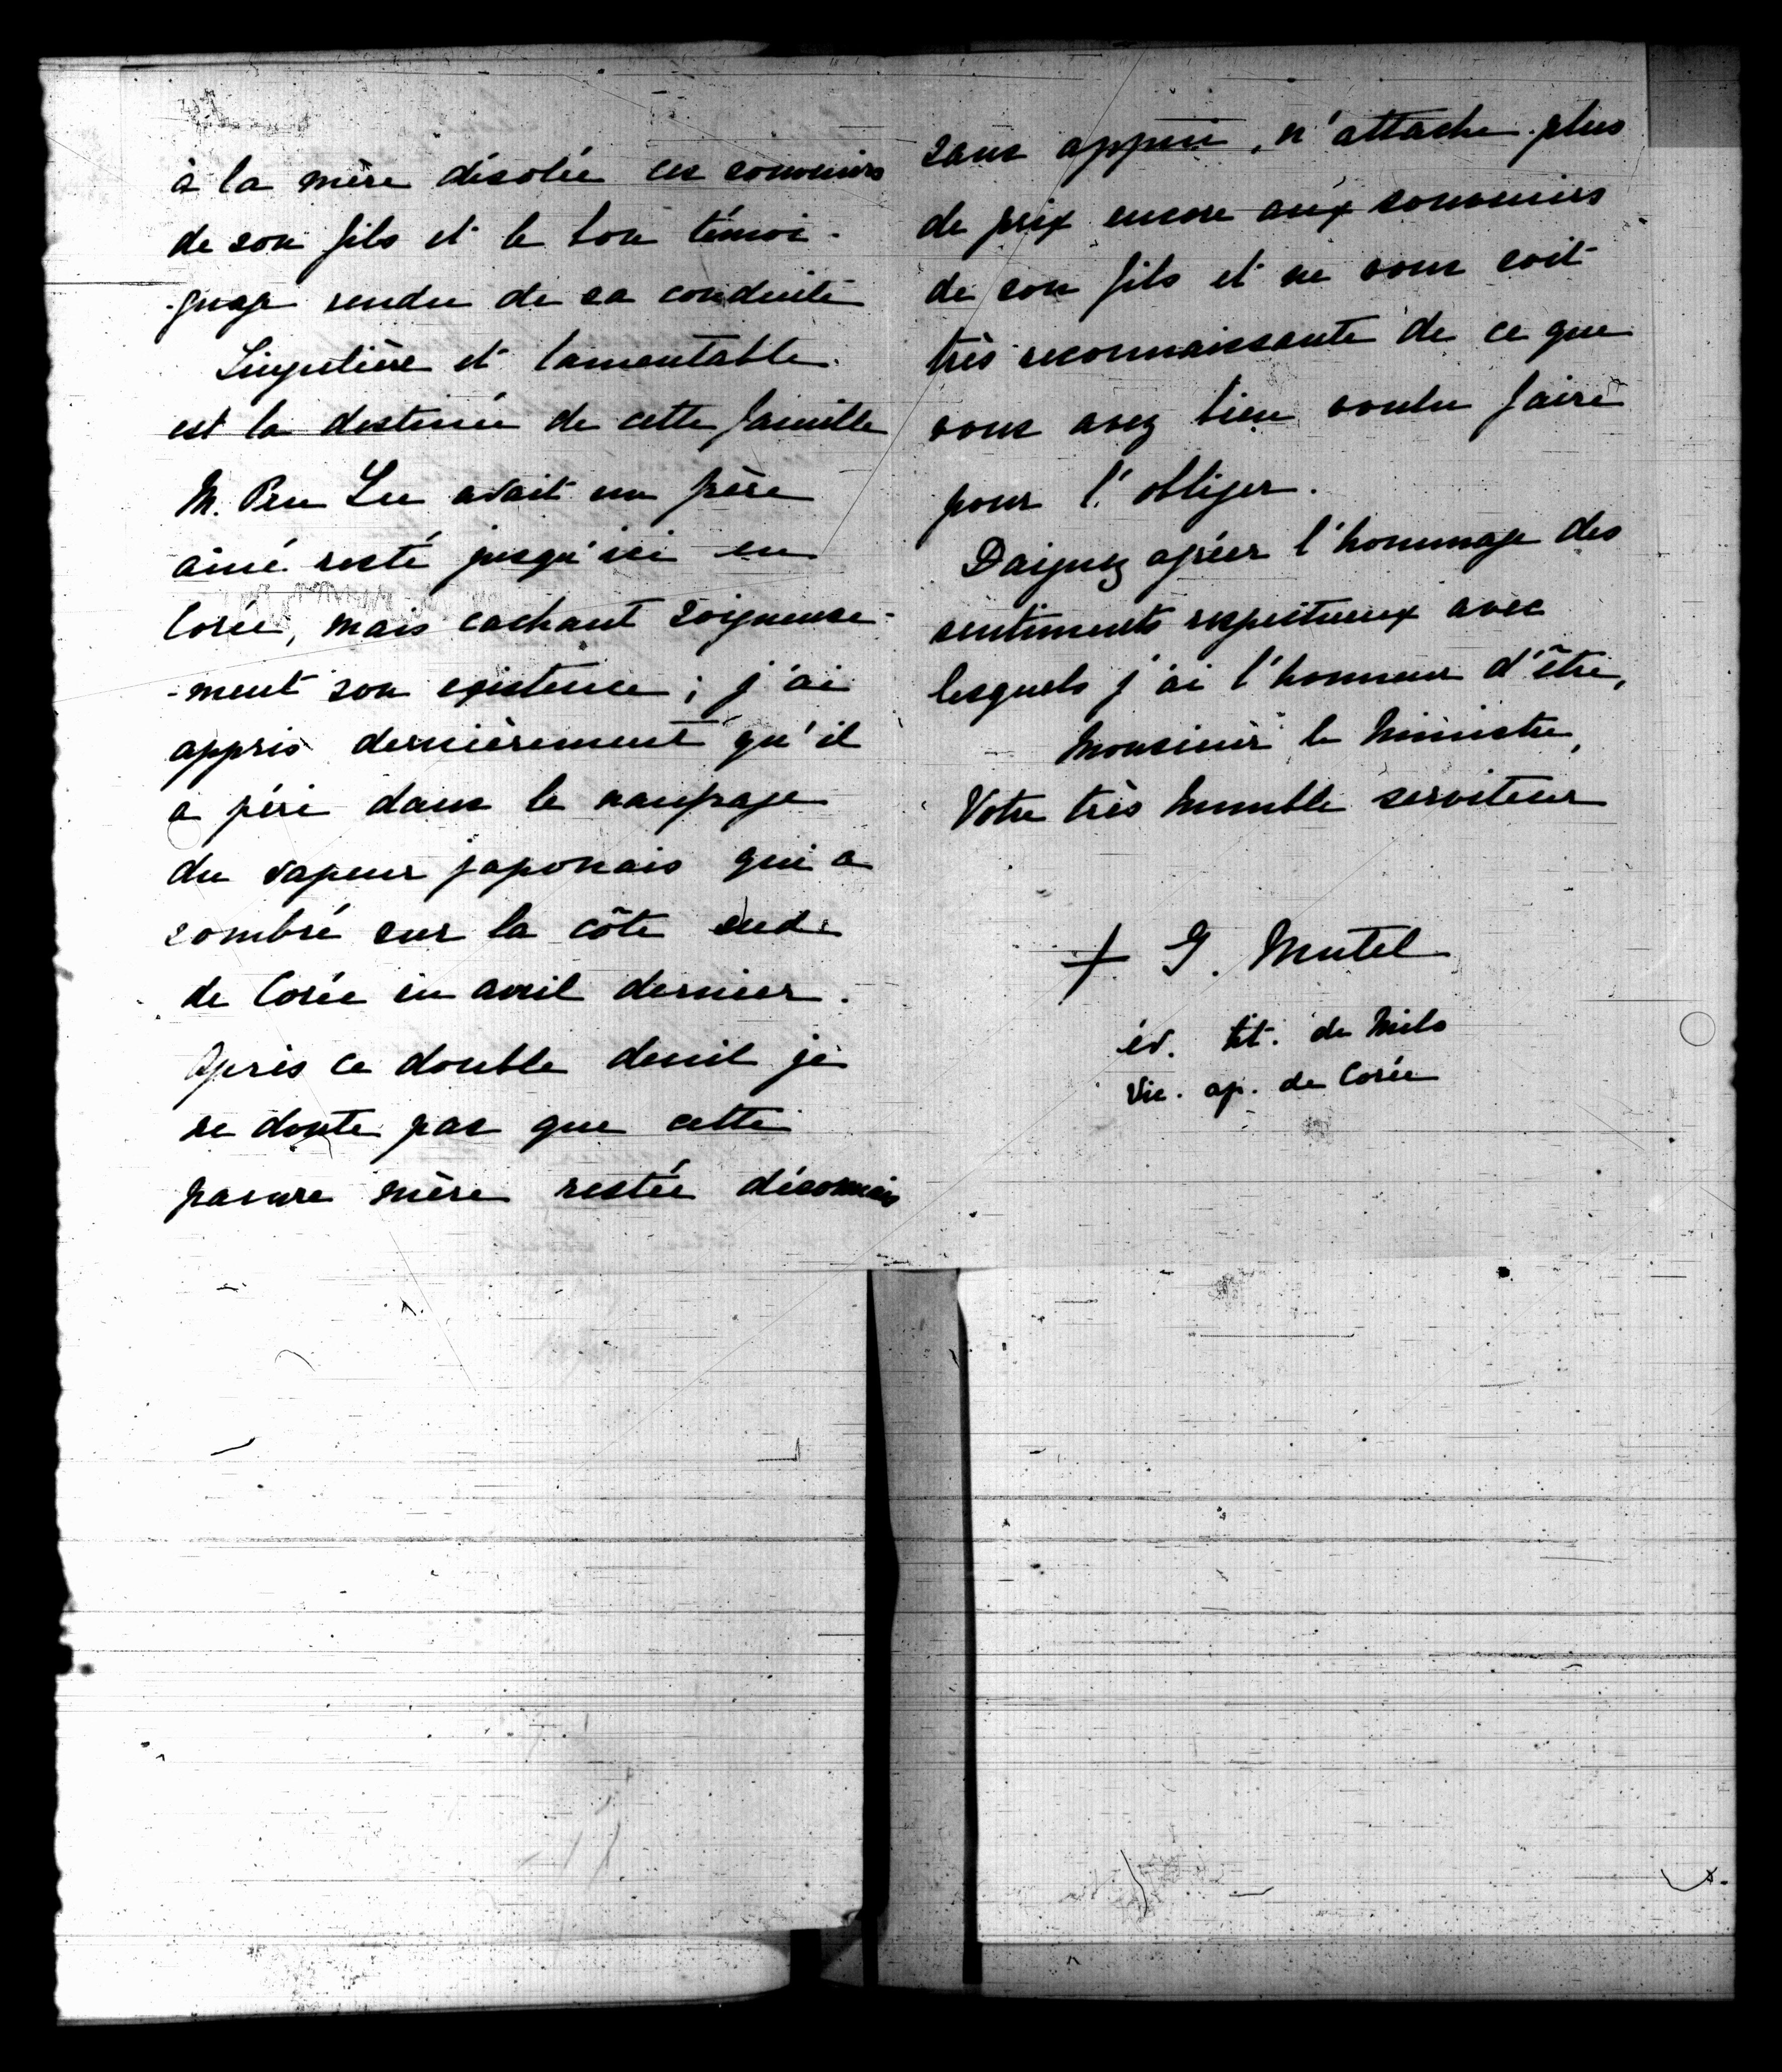 à la mère désolée ces souvenirs
de son fils et le bon témoi-
-gnage rendu de sa conduite
Singulière et lamentable
est la destinée de cette famille
M. Peu Lu avait un frère
aîné resté jusqu'ici en
Corée, mais cachant soigneuse-
-ment son existence ; j'ai
appris dernièrement qu'il
a péri dans le naufrage
du vapeur japonais qui a
sombré sur la côte sud
de Corée en avril dernier.
Après ce double deuil je
ne doute pas que cette
pauvre mère restée désormais
sans appui, n'attache plus
de prix encore aux souvenirs
de son fils et ne vous soit
très reconnaissante de ce que
vous avez bien voulu faire
pour l'obliger.
Daignez agréer l'hommage des
sentiments respectueux avec
lesquels j'ai l'honneur d'être,
Monsieur le Ministre,
Votre très humble serviteur
+ G. Mutel
év. tit. de Milo
Vic. ap. de Corée